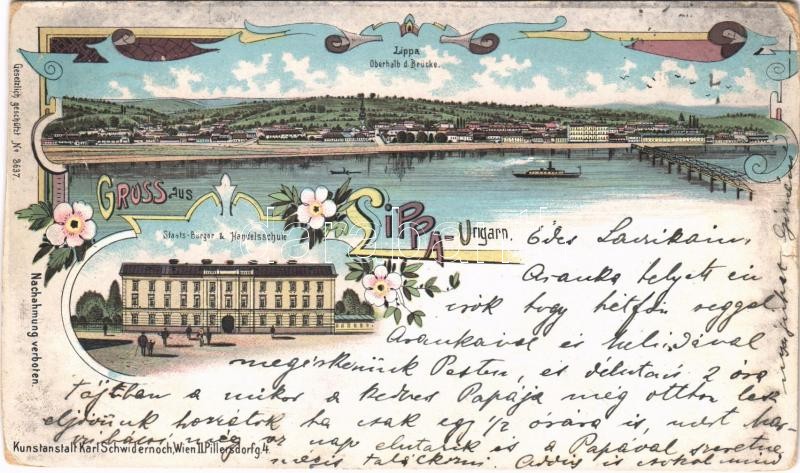 Lippa
Oberhalb d. Brücke.
Gesetzlich geschützt No 3637.
GRUSS aus
LIPPA- Ungarn.
Staats-Bürger & Handelsschule
Nachahmung verboten.
Édes Sarikám,
Aranka helyett én
irok hogy hétfőn reggel
Arankával és
megérkezünk Pesten, és délután 2 óra
tájtban a mikor a kedves Papája még otthon lesz
eljövünk hozzátok ha csak egy 1/2 órára is, mert
még az nap elutazik és a Papával szeretne
találkozni. Addig is csókol mind
Kunstanstalt Karl Schwidernoch, Wien II. Pillersdorfg. 4.